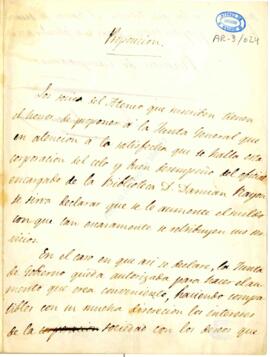 AR-3/624
Proposicion.
Los socios del Ateneo que suscriben tienen
el honor de proponer á la Junta General que
en atención á lo satisfecha que se halla esta
corporacion del celo y buen desempeño del oficial
encargado de la Biblioteca D. Damian Rayon
se sirva declarar que se le aumente el sueldo
con que tan escasamente se retribuyen sus ser
vicios.
En el caso en que así se declare, la Junta
de Gobierno queda autorizada para hacer el au
mento que crea conveniente, haciendo compa
tibles con su mucha discrecion los intereses
de la corporacion sociedad con los deseos que